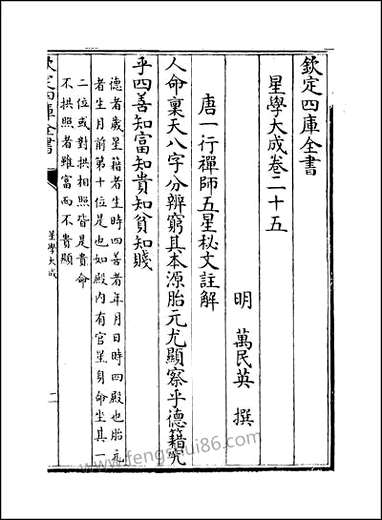 欽定四庫全書
星學大成卷二十五
明 萬民英 撰
唐一行禪師五星秘文註解
人命稟天八字分辨窮其本源胎元尤顯察乎德籍究
乎四善知富知貴知貧知賤
德者歲星籍者生時四善者年月日時四殿也胎元
者生月前第十位是也如殿内有官星身命坐其一
二位或對拱相照皆是貴命
不拱照者雖富而不貴顯
欽定四庫全書
星學大成
一
www.fengshui86.com